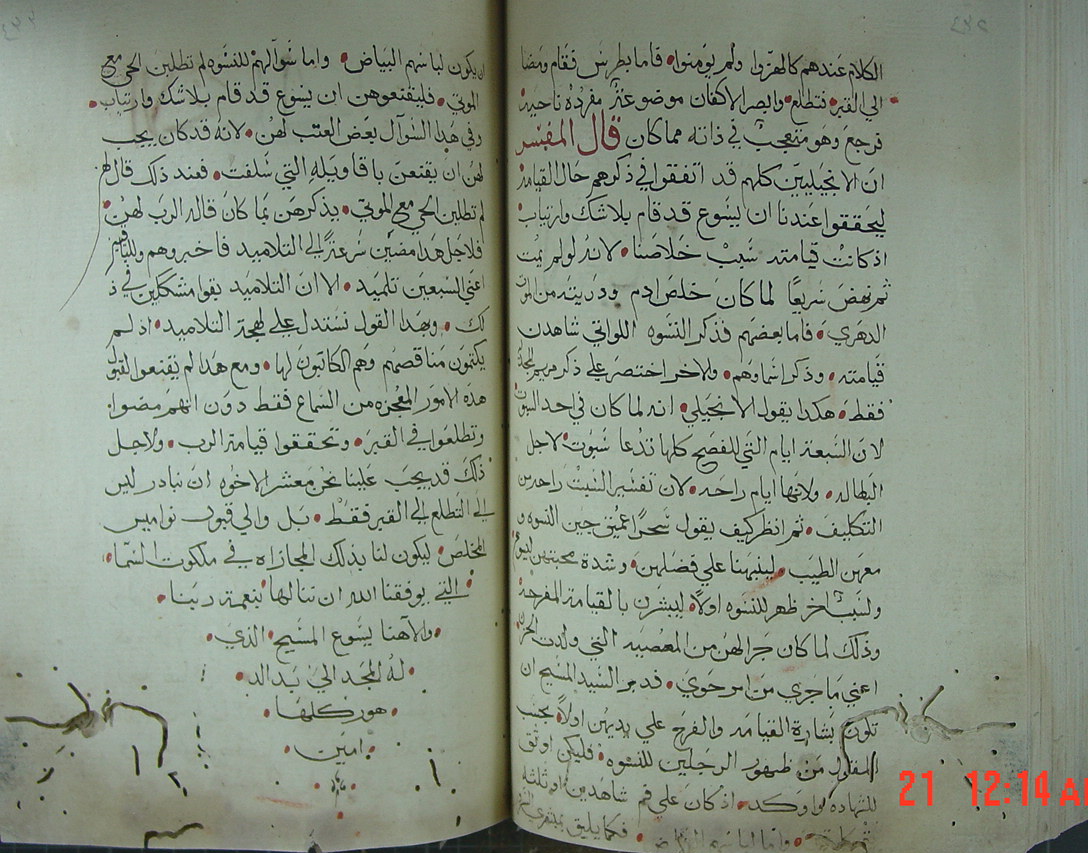 الكلام عندهم كالهزوا ولم يومنوا فاما بطرس فقام ومضا
الي القبر فتطلع وابصر الاكفان موضوعة مفردة ناحية
فرجع وهو متعجب في ذاته مما كان قال المفسر
ان الانجيليين كلهم قد اتفقوا في ذكرهم حال القيامة
ليحققوا عندنا ان يسوع قد قام بلا شك وارتياب
اذ كانت قيامته سبب خلاصنا لانه لو لم يمت
ثم نهض سريعا لما كان خلص ادم وذريته من الموت
الدهري فاما بعضهم فذكر النسوه اللواتي شاهدن
قيامته وذكر اسماوهم والاخر اختصر علي ذكر مريم المجدلية
فقط هكذا يقول الانجيلي انه لما كان في احد السبوت
لان السبعة ايام التي للفصح كلها تدعا سبوت لاجل
البطاله ولانها ايام راحه لان تفسير السبت راحه من
التكليف ثم انظر كيف يقول سحرا عميق حين النسوه و
معهن الطيب لينبهنا علي فضلهن وشدة محبتهن ليسوع
ولسبب اخر ظهر للنسوه اولا ليبشرن بالقيامة المفرحة
وذلك لما كان جرا لهن من المعصيه التي ولدت الحزن
اعني ما جري من امر حوي فدبر السيد المسيح ان
تكون بشارة القيامه والفرح علي يديهن اولا يجب
القول من ظهور الرجلين للنسوه فليكن اوثق
للشهاده واوكد اذ كان علي فم شاهدين او ثلثة
واما لباسهم البياض فكما يليق
ان يكون لباسهم البياض واما سوالهم للنسوه لم تطلبن الحي مع
الموتي فليقنعوهن ان يسوع قد قام بلا شك وارتياب
وفي هذا السوال بعض العتب لهن لانه قد كان يجب
لهن ان يقنعن باقاويله التي سلفت فعند ذلك قال لهن
لم تطلبن الحي مع الموتي يذكرهن بما كان قاله الرب لهن
فلاجل هذا مضين سرعة الي التلاميد فاخبروهم وللباقين
اعني السبعين تلميد الا ان التلاميد بقوا مشككين في ذ
لك وبهذا القول نستدل علي لهجة التلاميد اذ لم
يكتمون مناقصهم وهم الكاتبون لها ومع هذا لم يقنعوا لقبول
هذه الامور المعجزه من السماع فقط دون انهم مضوا
وتطلعوا في القبر وتحققوا قيامة الرب ولاجل
ذلك قد يجب علينا نحن معشر الاخوه ان نبادر ليس
الي التطلع الي القبر فقط بل والي قبول نواميس
المخلص ليكون لنا بذلك المجازاه في ملكوت السما
التي يوفقنا الله ان ننالها بنعمة ربنا
والاهنا يسوع المسيح الذي
له المجد الي ابد الد
هور كلها
امين
21 12:14 A